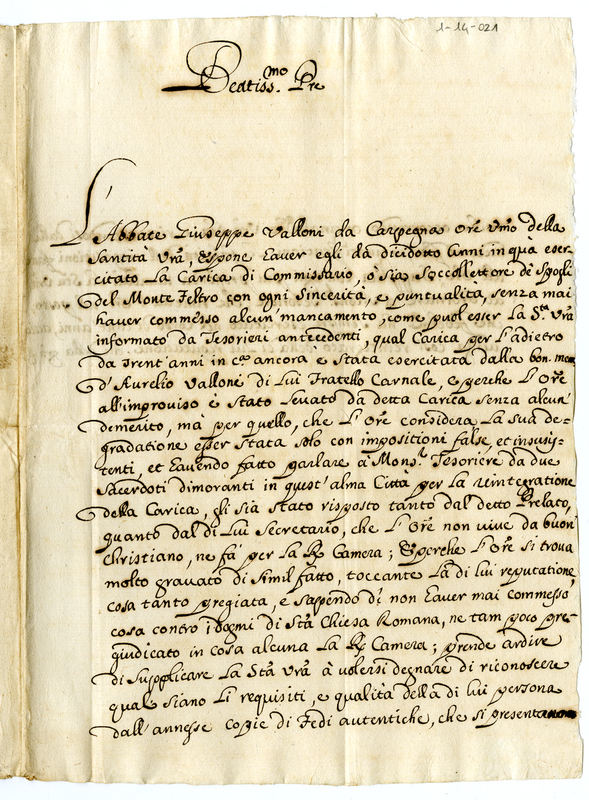 1-14-021
Beatiss.mo Pre
L'Abbate Giuseppe Valloni da Carpegna Ore Umo della
Santità Vrã, Espone haver egli da dicidotto Anni in quà eser-
citato La Carica di Commissario, ò sia Soccollettore de Spogli
del Monte Feltro con ogni Sincerità, e puntualità, senza mai
haver commesso alcun mancamento, come puol esser La S.tà Vrã
informato da Tesorieri antecedenti, qual Carica per L'adietro
da trent'anni in c.a ancora è Stata esercitata dalla bon. mem.
d'Aurelio Vallone di Lui Fratello Carnale, e perche L'Ore
all'improviso è Stato Levato da detta Carica senza alcun
demerito, mà per quello, che L'Ore considera La sua de=
gradatione esser stata solo con impositioni false, et insusis=
tenti, et havendo fatto parlare à Mons.r Tesoriere da due
Sacerdoti dimoranti in quest'alma Città per La reintegratione
della Carica, gli sia stato risposto tanto dal detto Prelato,
quanto dal di Lui Secretario, che L'Ore non vive da buon
Christiano, ne fà per La R. Camera; E perche L'Ore si trova
molto gravato di simil fatto, toccante Là di lui reputatione
cosa tanto pregiata, e sapendo di non haver mai commesso
cosa contro i dogmi di Stã Chiesa Romana, ne tam poco pre-
giudicato in cosa alcuna La R. Camera; prende ardire
di supplicare La Stã Vrã à volersi degnare di riconoscere
qual siano Li requisiti, e qualità della di lui persona
dall'annesse copie di Fedi autentiche, che si presentano